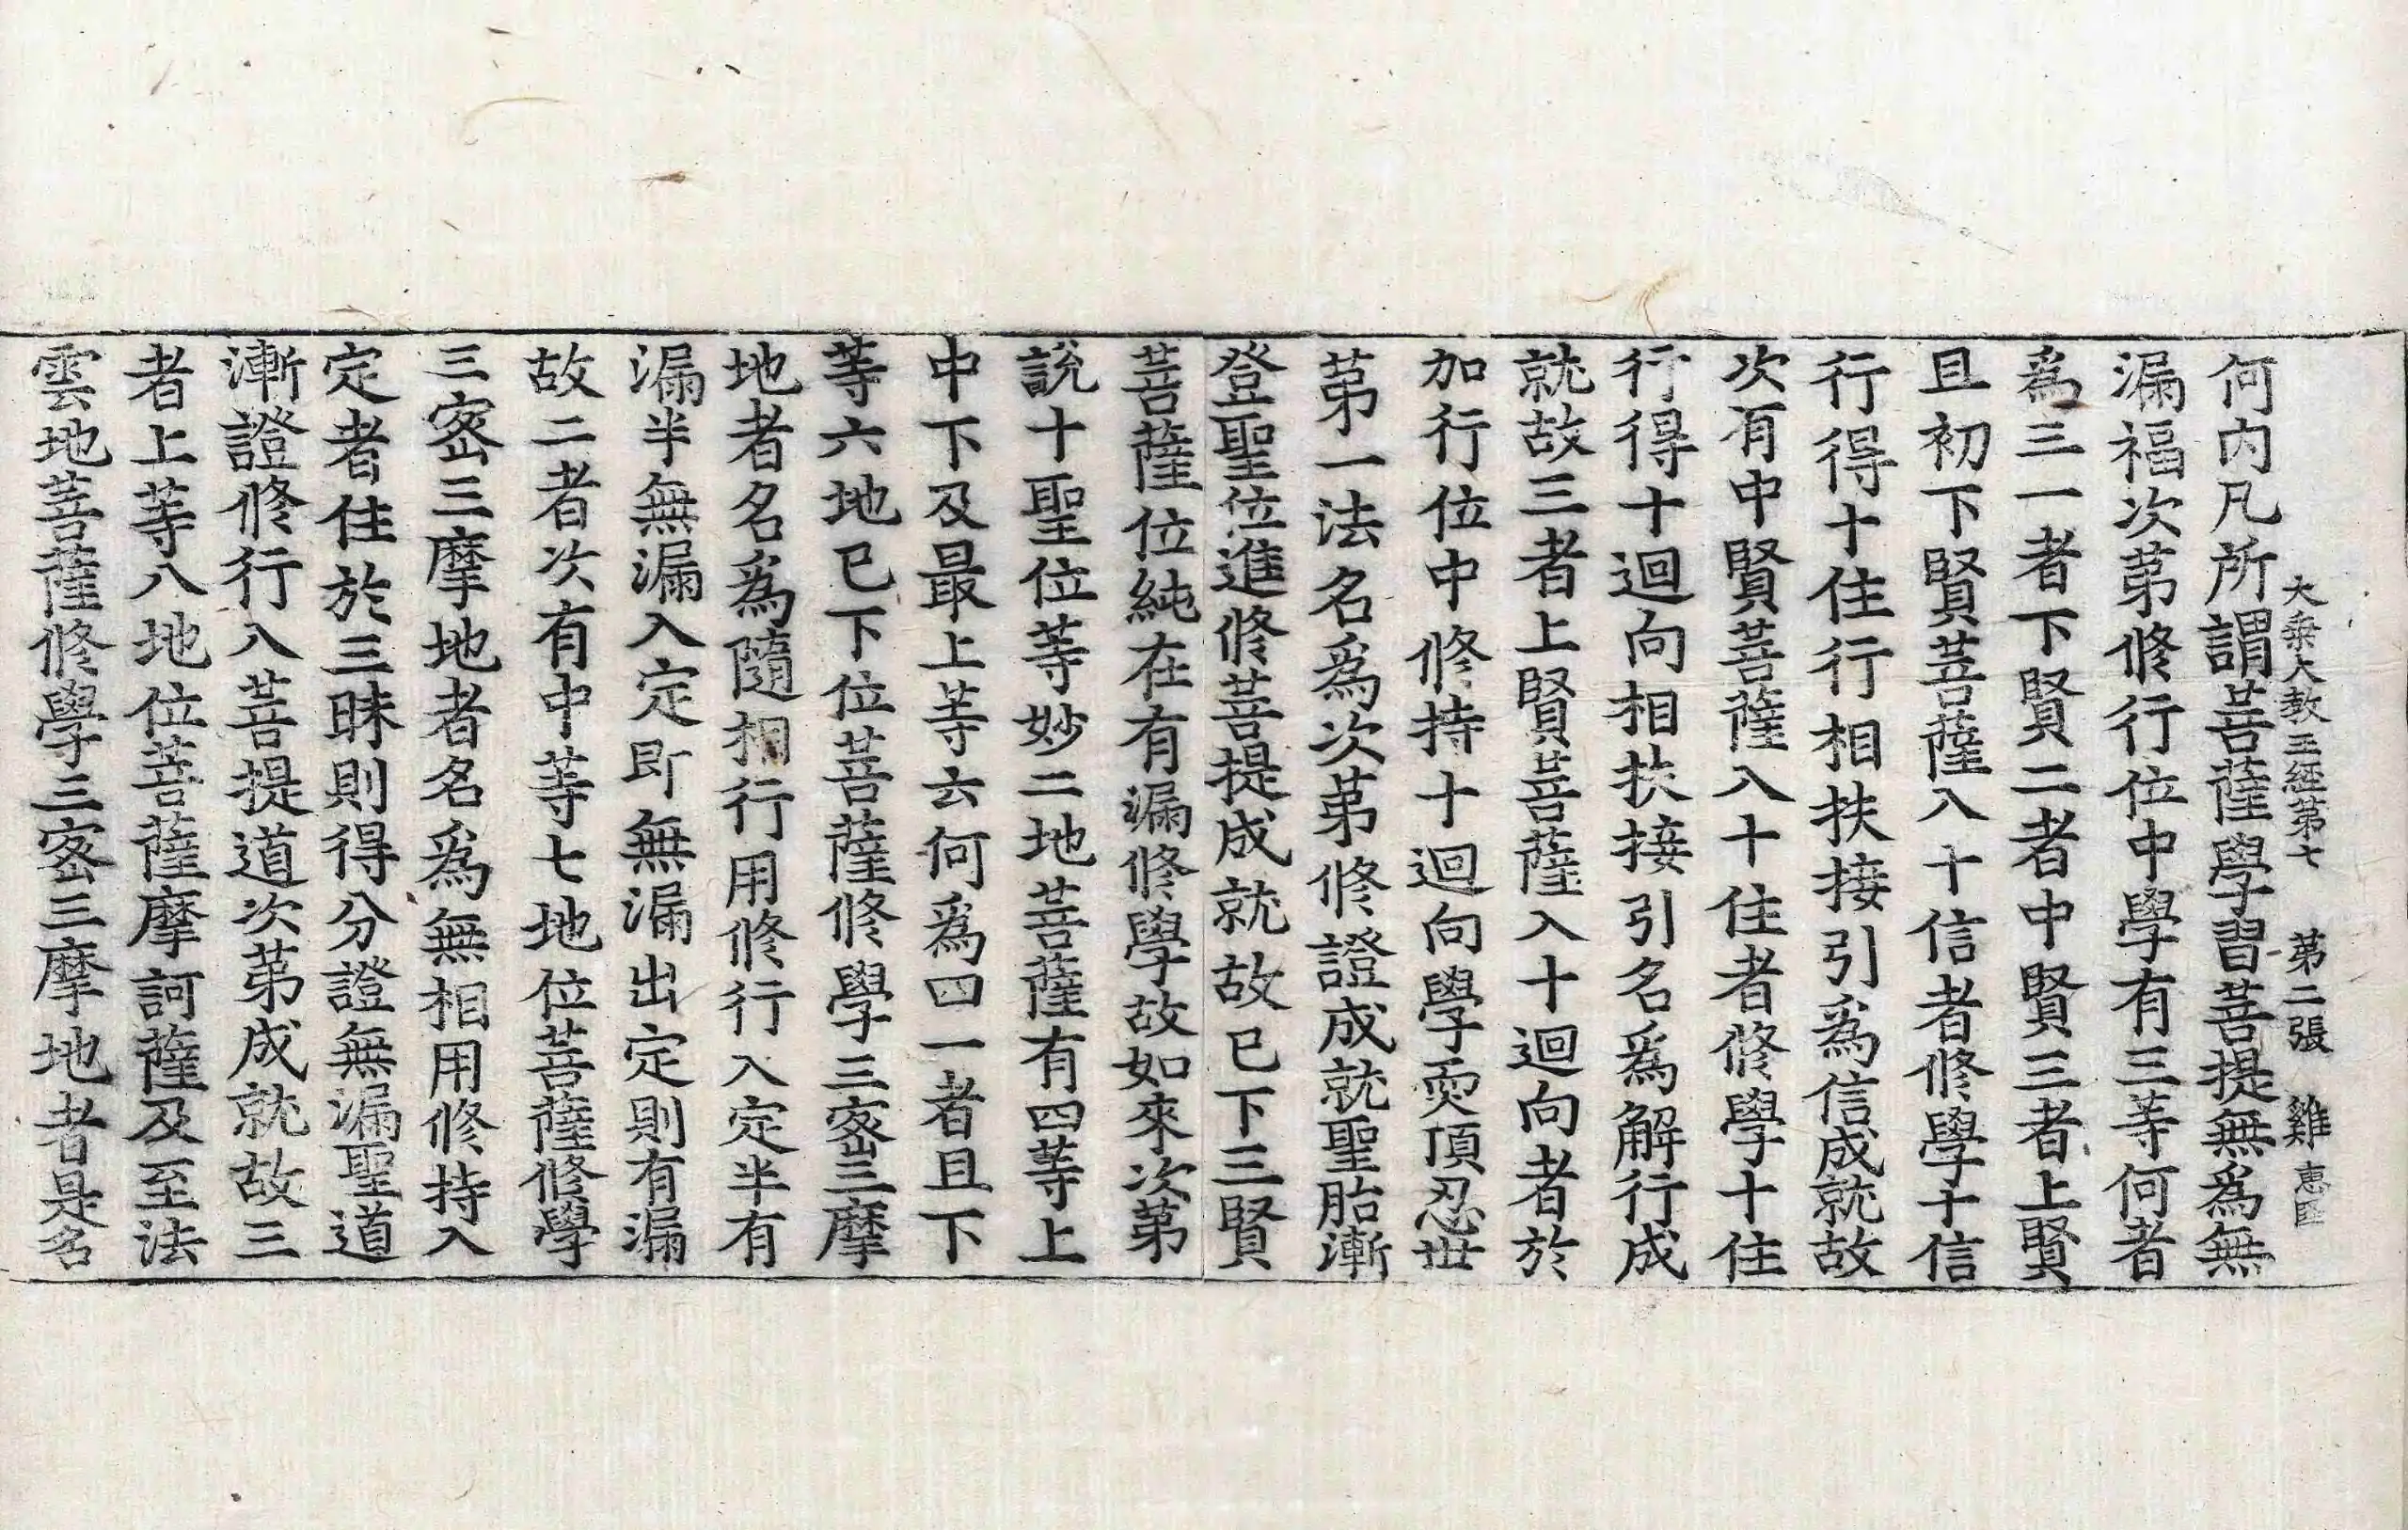 大乗大教王經第七　第二張　雞　惠臣
何内凡所謂菩薩學習菩提無爲無
漏福次苐修行位中學有三等何者
爲三一者下賢二者中賢三者上賢
且初下賢菩薩入十信者修學十信
行得十住行相扶接引爲信成就故
次有中賢菩薩入十住者修學十住
行得十迴向相扶接引名爲解行成
就故三者上賢菩薩入十迴向者於
加行位中修持十迴向學耎頂忍世
苐一法名爲次苐修證成就聖胎漸
登聖位進修菩提成就故已下三賢
菩薩位純在有漏修學故如來次苐
說十聖位等妙二地菩薩有四等上
中下及最上等云何爲四一者且下
等六地已下位菩薩修學三密三摩
地者名爲隨相行用修行入定半有
漏半無漏入定即無漏出定則有漏
故二者次有中等七地位菩薩修學
三密三摩地者名爲無相用修持入
定者住於三昧則得分證無漏聖道
漸證修行入菩提道次苐成就故三
者上等八地位菩薩摩訶薩及至法
雲地菩薩修學三密三摩地者是名